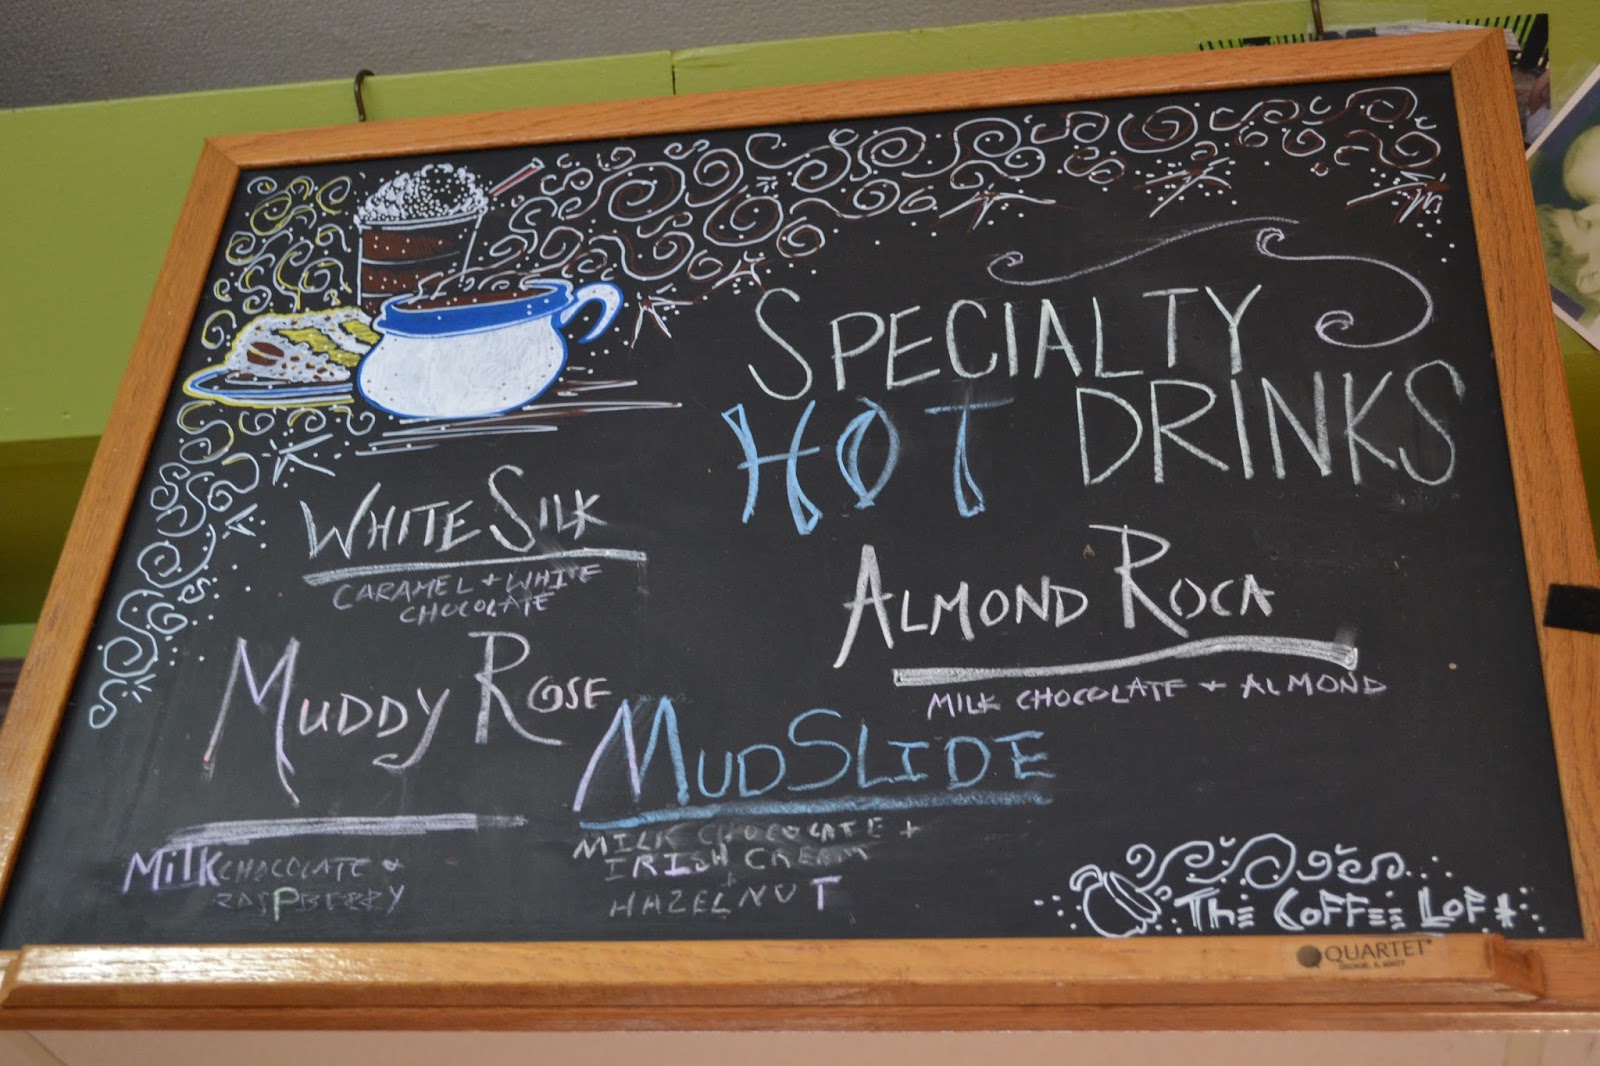 SPECIALTY
HOT DRINKS
WHITE SILK
CARAMEL + WHITE
CHOCOLATE
ALMOND ROCA
MILK CHOCOLATE + ALMOND
MUDDY ROSE
MiLK CHOCOLATE &
RASPBERRY
MUDSLIDE
MILK CHOCOLATE +
IRISH CREAM
+
HAZELNUT
THE COFFEE LOFT
QUARTET